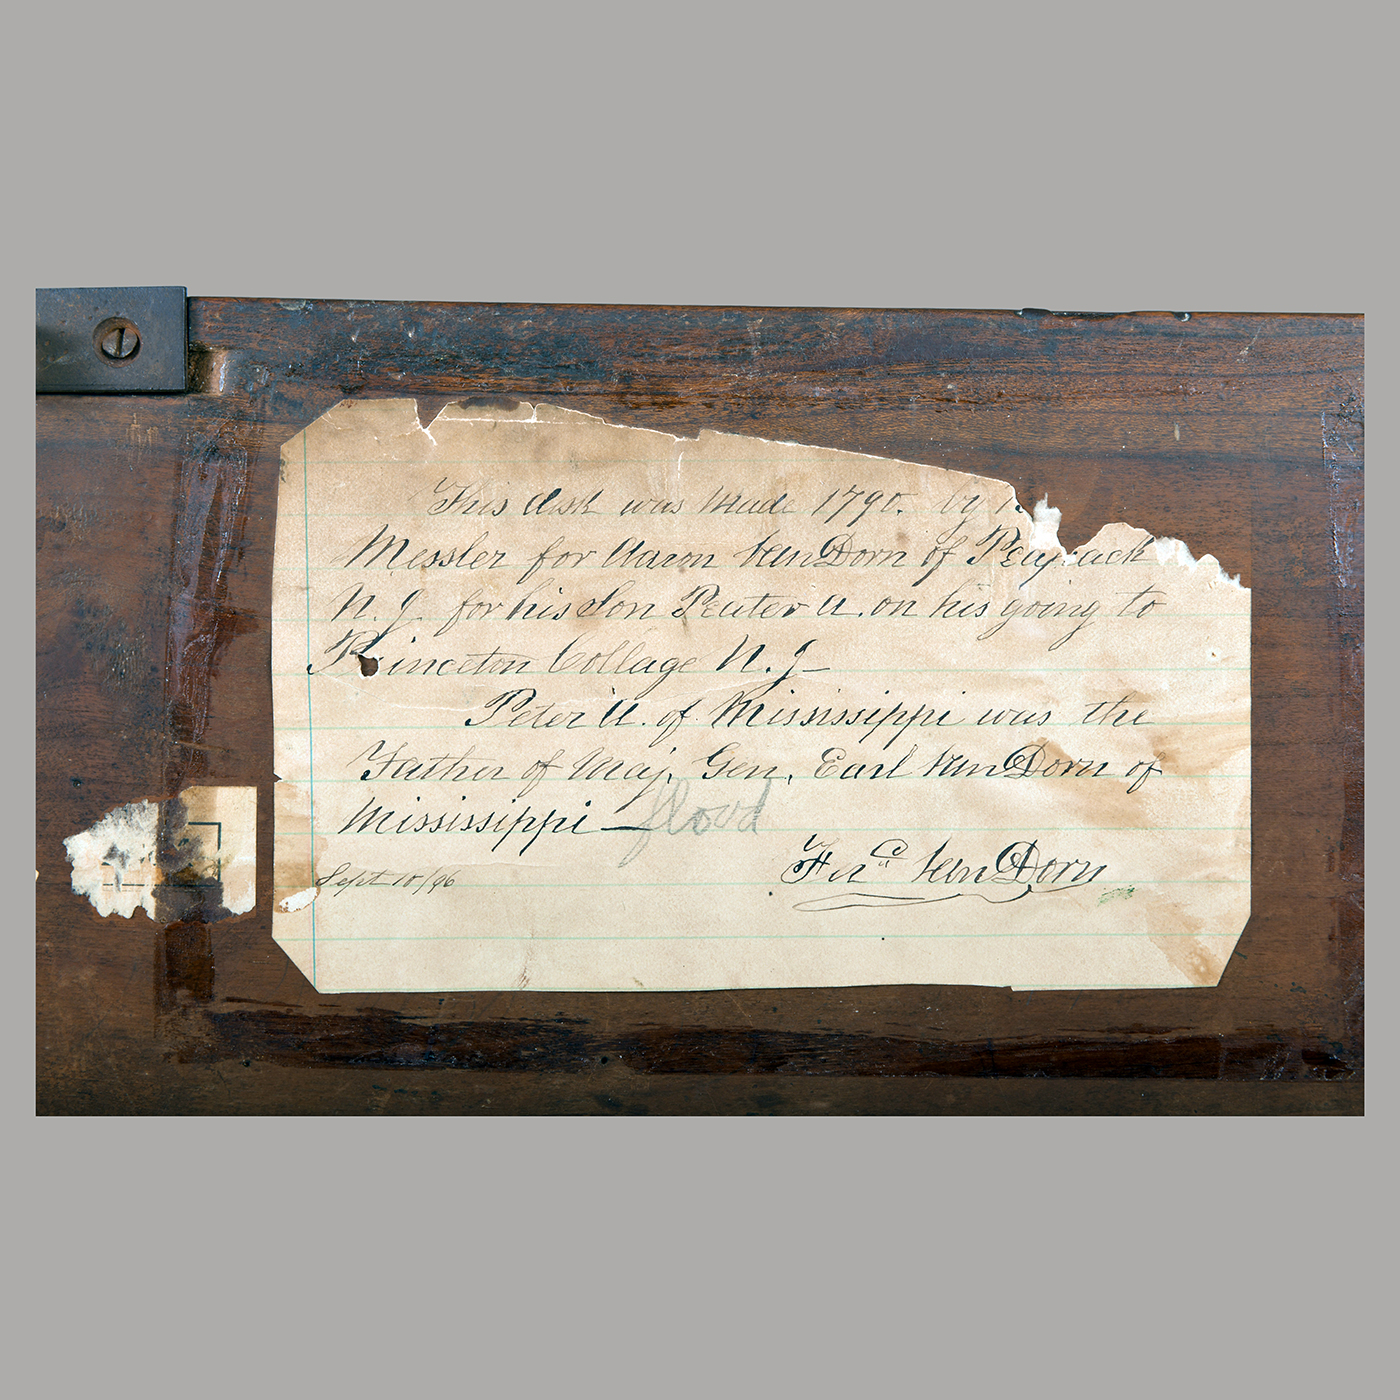 This desk was Made 1790. by
Messler for Aaron VanDorn of Peapack
N. J. for his Son Peater A. on his going to
Princeton Collage N. J —
Peter A. of Mississippi was the
Father of Maj. Gen. Earl VanDorn of
Mississippi — flood
VanDorn
Sept 10/96